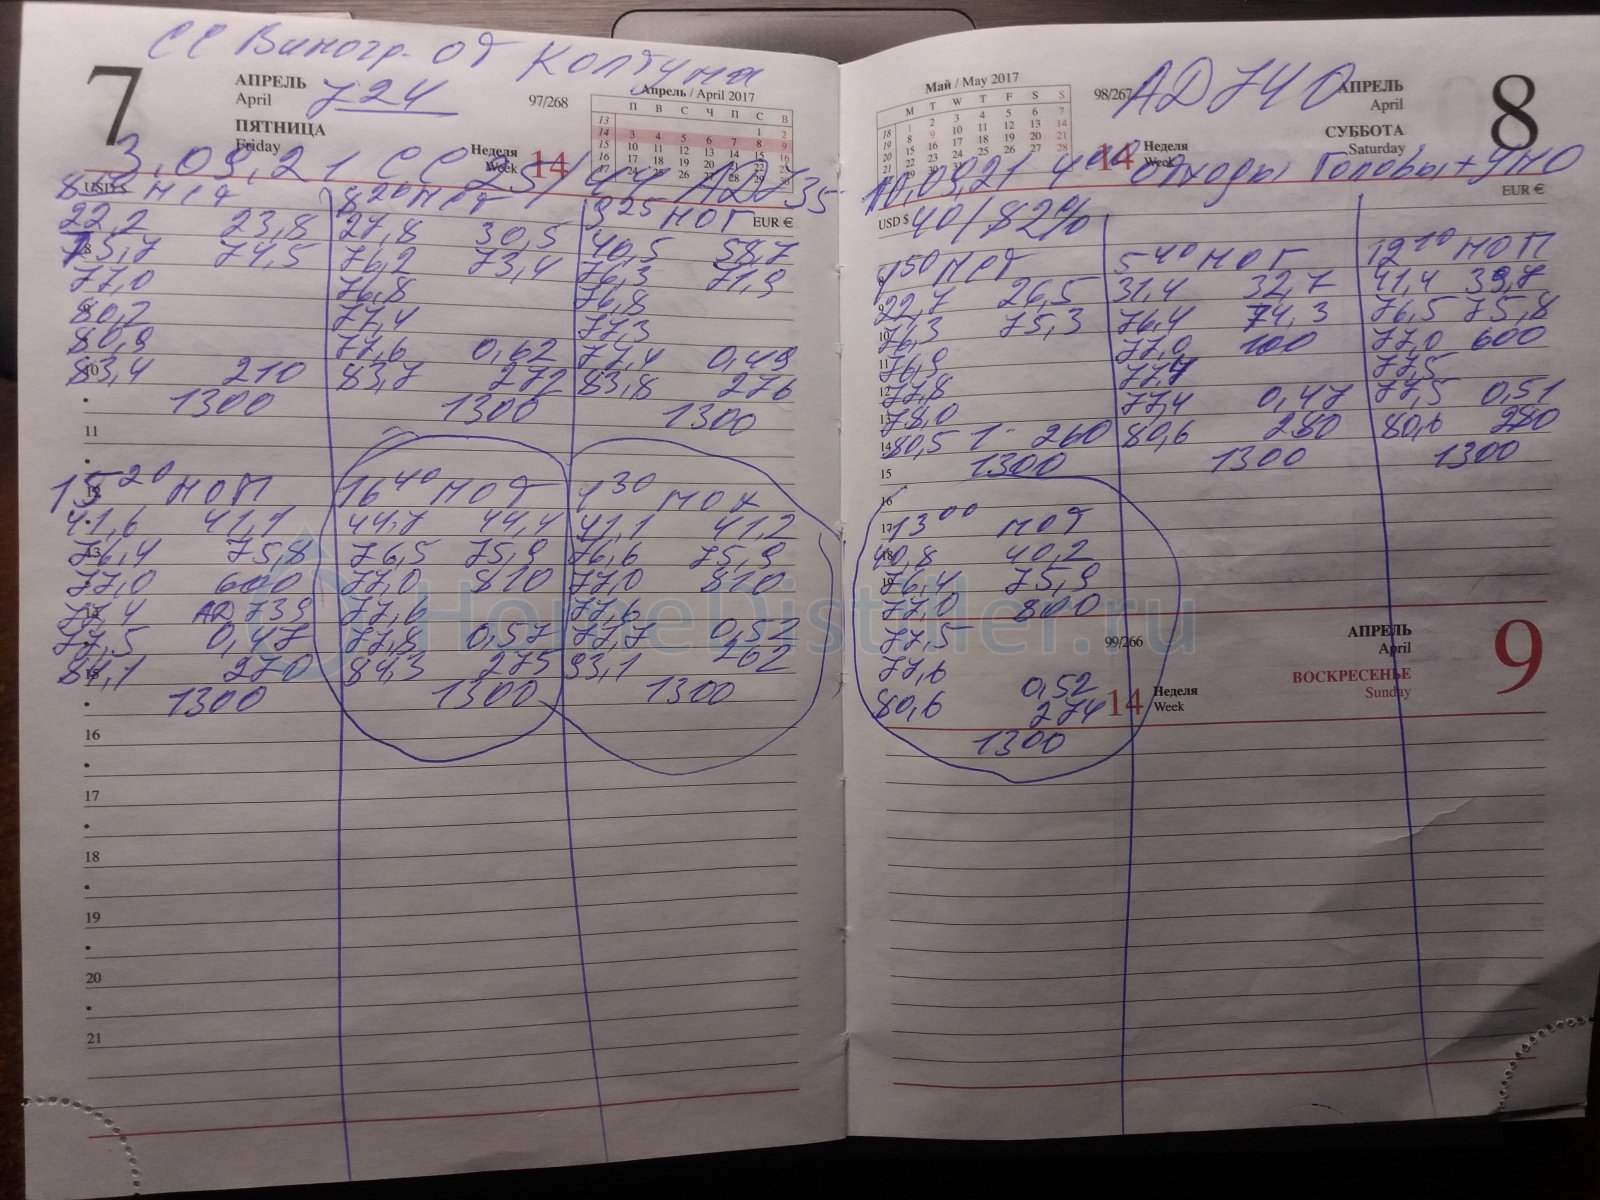 СС Виногр. от Колтуна
7
АПРЕЛЬ
April
724
97/268
ПЯТНИЦА
Friday
Апрель / April 2017
П В С Ч П С В
13 1 2
14 3 4 5 6 7 8 9
15 10 11 12 13 14 15 16
16 17 18 19 20 21 22 23
17 24 25 26 27 28 29 30
Неделя
Week
14
3,09,21 СС 25/44 АД 735
USD $
EUR €
22,2 23,8
75,7 74,5
77,0
80,2
80,9
83,4 210
1300
8 20
27,8 30,5
76,2 73,4
76,8
77,4
77,6 0,62
83,7 272
1300
9 25 НОГ
40,5 58,7
76,3 71,9
76,8
77,3
77,4 0,49
83,8 276
1300
15 20 НОП
41,6 41,1
76,4 75,8
77,0 600
77,4 АД 739
77,5 0,47
84,1 270
1300
16 40 НОТ
44,7 44,4
76,5 75,9
77,0 810
77,6
77,8 0,57
84,3 275
1300
1 30
41,1 41,2
76,6 75,9
77,0 810
77,6
77,7 0,52
93,1 262
1300
8
9
10
11
12
13
14
15
16
17
18
19
20
21
Май / May 2017
M T W T F S S
18 1 2 3 4 5 6 7
19 8 9 10 11 12 13 14
20 15 16 17 18 19 20 21
21 22 23 24 25 26 27 28
22 29 30 31
98/267
АД 740
АПРЕЛЬ
April
8
СУББОТА
Saturday
14
Неделя
Week
11,09,21 отходы Головы + УНО
USD $
EUR €
40/82%
1 50
22,7 26,5
76,3 75,3
76,9
77,8
78,0
80,5 260
1300
5 40 НОГ
31,4 32,7
76,4 74,3
77,0 100
77,4
77,4 0,47
80,6 280
1300
12 10 НОП
41,4 39,7
76,5 75,8
77,0 600
77,5
77,5 0,51
80,6 280
1300
13 00 НОТ
40,8 40,2
76,4 75,9
77,0 800
77,5
77,6
0,52
80,6 274
1300
8
9
10
11
12
13
14
15
16
17
18
19
99/266
АПРЕЛЬ
April
9
ВОСКРЕСЕНЬЕ
Sunday
14
Неделя
Week
HomeDistiller.ru